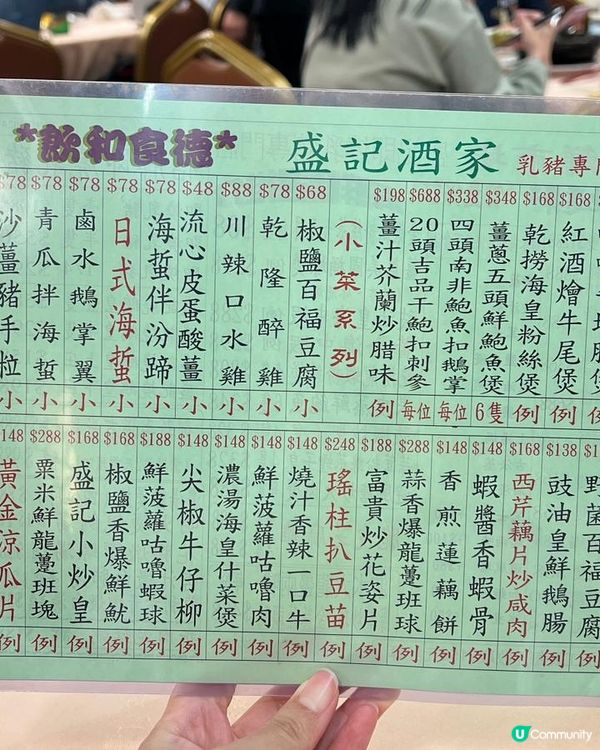 *飲和食德*
盛記酒家
乳豬專
$168 紅酒燴牛尾煲 例
$168 乾撈海皇粉絲煲 例
$348 薑蔥五頭鮮鮑魚煲 6隻
$338 四頭南非鮑魚扣鵝掌 每位
$688 20頭吉品干鮑扣刺參 每位
$198 薑汁芥蘭炒腊味 例
(小菜系列)
$68 椒鹽百福豆腐 小
$78 乾隆醉雞 小
$88 川辣口水雞 小
$48 流心皮蛋酸薑 小
$78 海蜇伴汾蹄 小
$78 日式海蜇 小
$78 鹵水鵝掌翼 小
$78 青瓜拌海蜇 小
$78 沙薑豬手粒 小
野菌百福豆腐 例
$138 豉油皇鮮鵝腸 例
$168 西芹藕片炒咸肉 例
$148 蝦醬香蝦骨 例
$148 香煎蓮藕餅 例
$288 蒜香爆龍躉班球 例
$188 富貴炒花姿片 例
$248 瑤柱扒豆苗 例
$148 燒汁香辣一口牛 例
$148 鮮菠蘿咕嚕肉 例
$148 濃湯海皇什菜煲 例
$148 尖椒牛仔柳 例
$188 鮮菠蘿咕嚕蝦球 例
$168 椒鹽香爆鮮魷 例
$168 盛記小炒皇 例
$288 粟米鮮龍躉班塊 例
$148 黃金涼瓜片 例
U Community